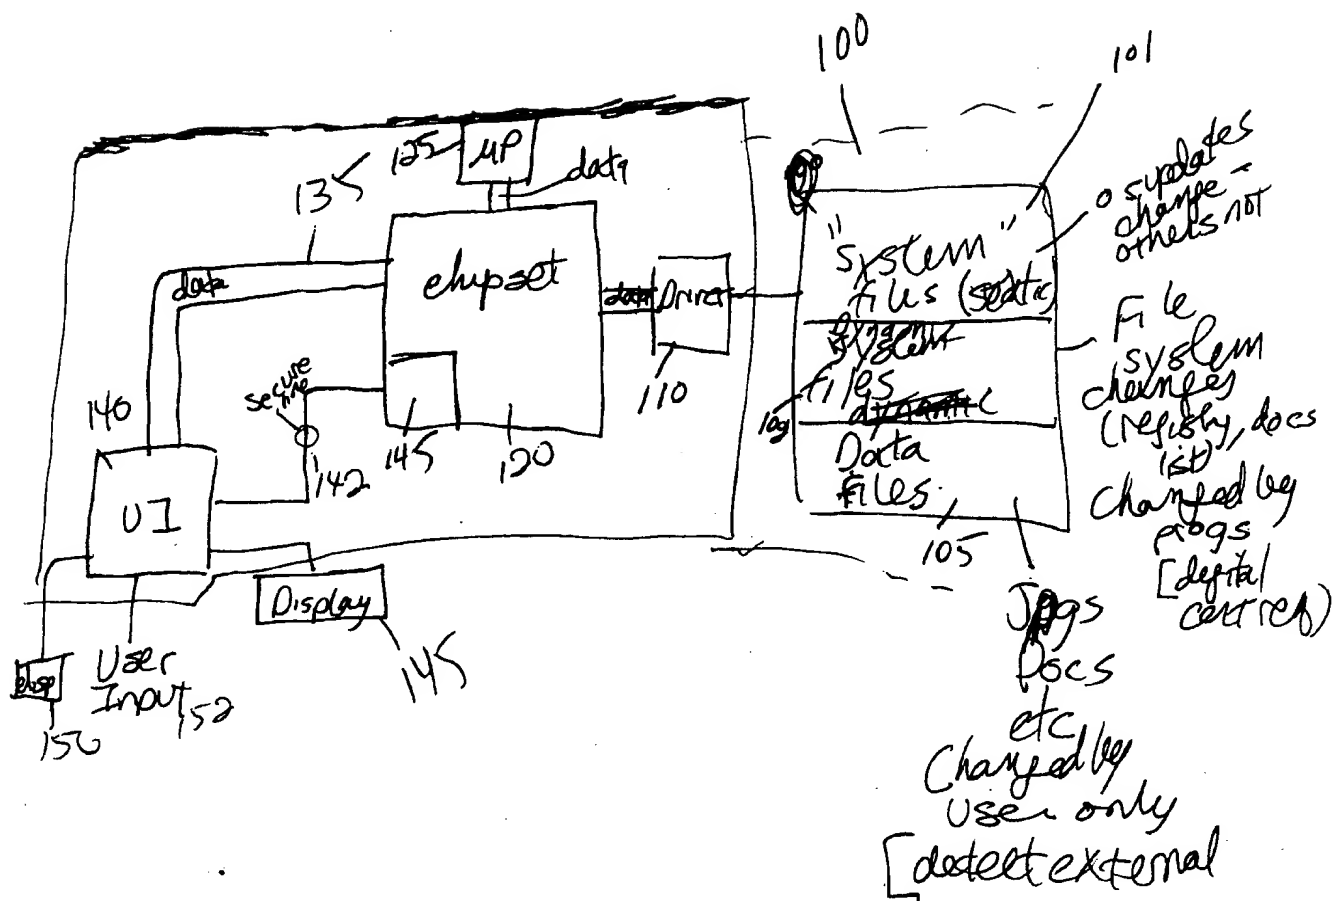 100
101
125
μP
data
135
data
chipset
data
Driver
110
secure
line
142
145
120
140
UI
Display
145
User
Input
152
150
"System"
files (static)
System
Files
dynamic
Data
Files
105
os updates
change -
others not
File
system
changes
(registry, docs
list)
Changed by
progs
[digital
cert req)
Jpgs
Docs
etc
Changed by
user only
[detect external